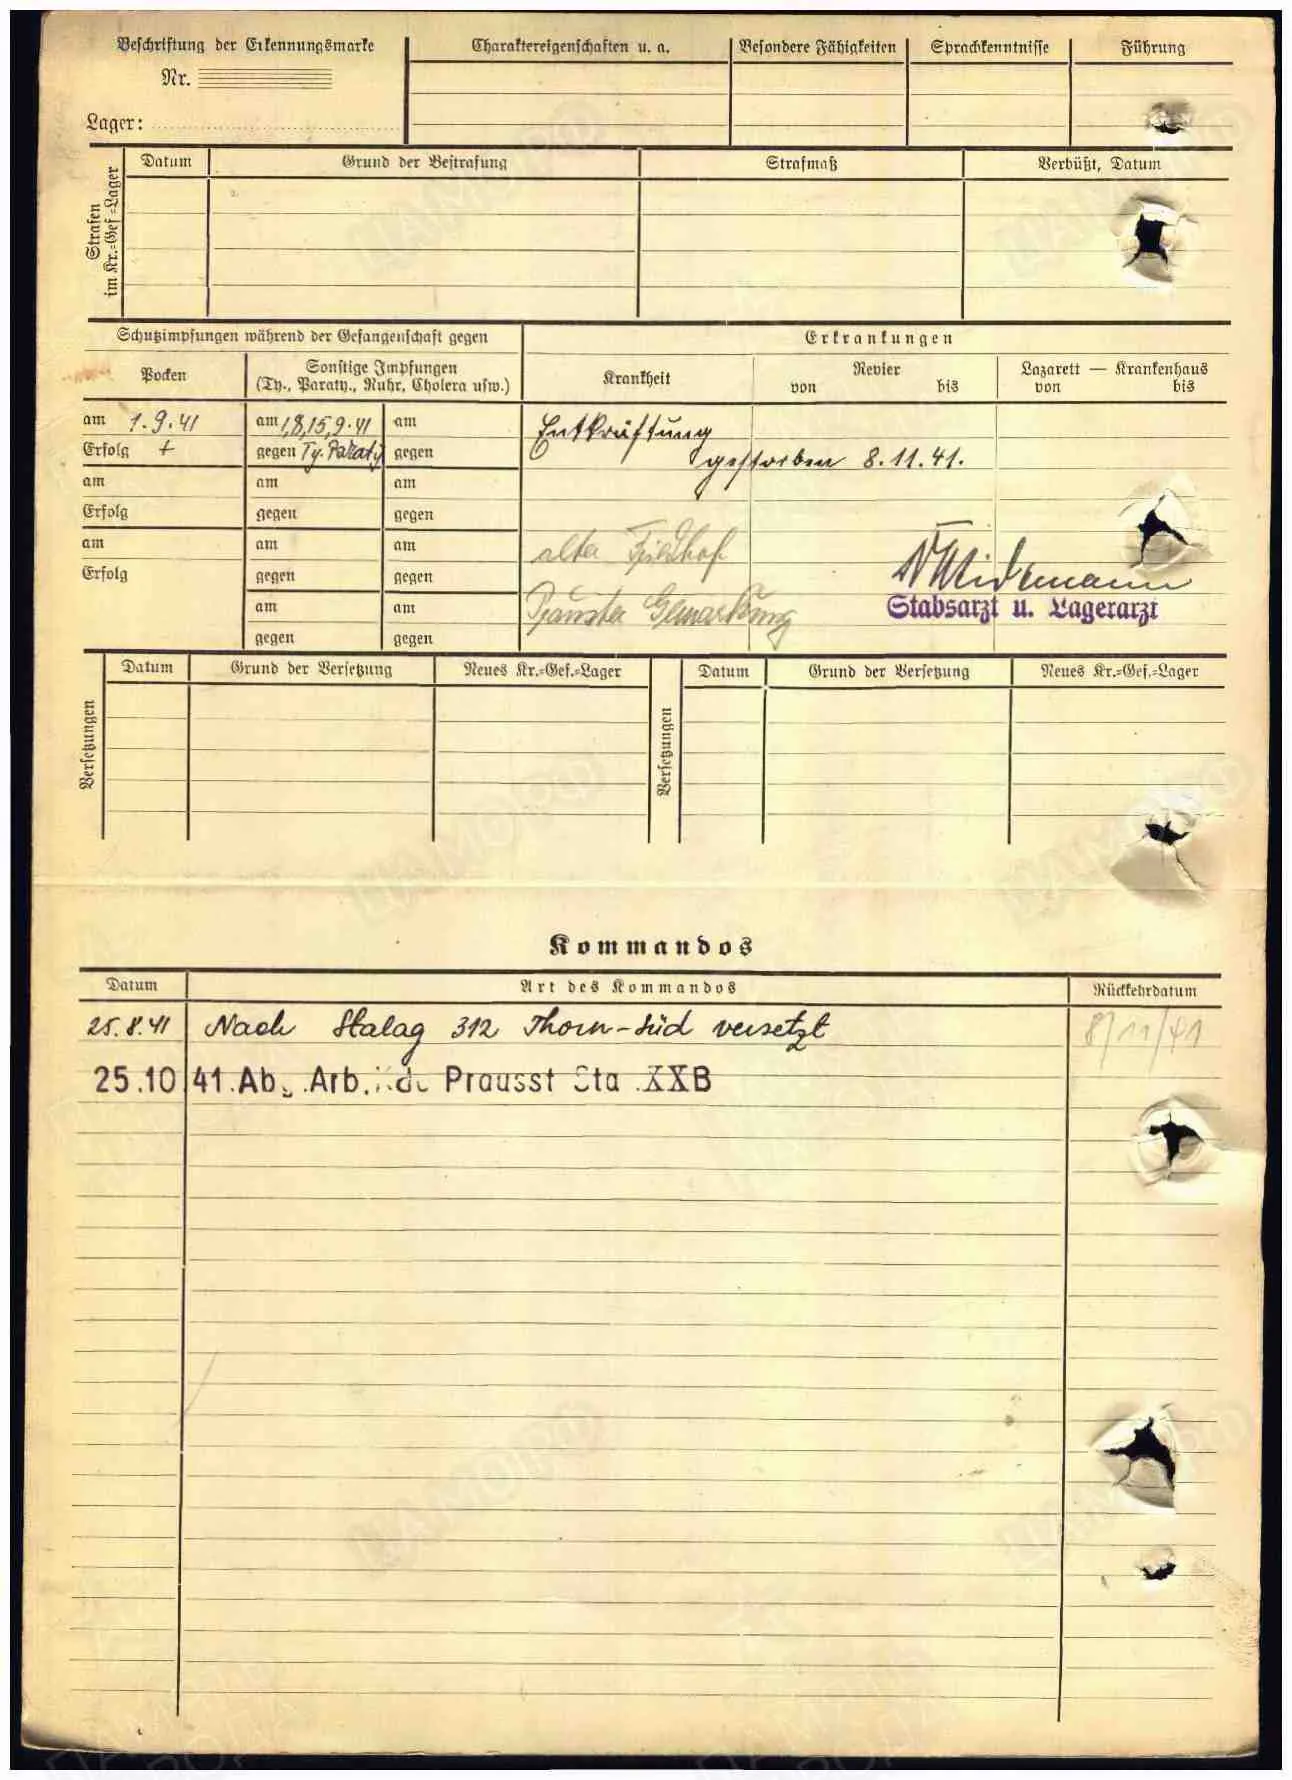 Beschriftung der Erkennungsmarke
Nr.
Lager:
Charaktereigenschaften u. a.
Besondere Fähigkeiten
Sprachkenntnisse
Führung
Strafen im Kr.=Gef.=Lager
Datum
Grund der Bestrafung
Strafmaß
Verbüßt, Datum
Schutzimpfungen während der Gefangenschaft gegen
Erkrankungen
Pocken
Sonstige Impfungen
(Ty., Paraty., Ruhr, Cholera usw.)
Krankheit
Revier
von bis
Lazarett — Krankenhaus
von bis
am 1.9.41 am 1,8,15,9.41 am
Erfolg + gegen Ty. Paraty gegen
Entkräftung
gestorben 8.11.41.
am am am
Erfolg gegen gegen
am am am
Erfolg gegen gegen
am am
gegen gegen
alter Friedhof
Prauster Gemarkung
Stabsarzt u. Lagerarzt
Versetzungen
Datum
Grund der Versetzung
Neues Kr.=Gef.=Lager
Versetzungen
Datum
Grund der Versetzung
Neues Kr.=Gef.=Lager
Kommandos
Datum
Art des Kommandos
Rückkehrdatum
25.8.41 Nach Stalag 312 Thorn-Süd versetzt 8/11/41
25.10 41. Arb. Prausst Sta XXB
ЦАМО РФ